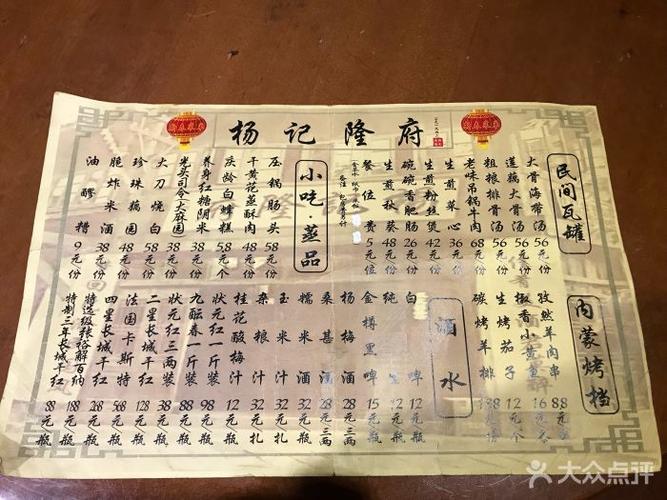 杨记隆府
民间瓦罐
大骨海带汤 56元/份
莲藕大骨汤 56元/份
粗粮排骨汤 56元/份
老味吊锅牛肉 68元/份
生煎菜心 36元/份
生煎粉丝煲 42元/份
碗碗香肥肠 58元/份
生煎秋葵 48元/份
餐位费 5元/位
小吃·蒸品
压锅肠头 58元/份
干黄花蒸酥肉 48元/份
庆龄白蜂糕 5.8元/个
养身红糖阴米
光头司令(大麻园)
大刀烧白 58元/份
珍珠藕园 48元/份
脆炸米酒 38元/份
油醪糟 9元/份
内蒙烤档
孜然羊肉串 88元
椒香小黄鱼 16元
生烤茄子 12元/个
碳烤羊排
酒水
白 12元/瓶
纯生 12元/瓶
金樽黑啤 15元/瓶
杨梅酒 28元/三两
桑葚酒 28元/三两
糯米酒 32元/扎
玉米汁 32元/扎
杂粮汁 32元/扎
桂花酸梅汁 12元/瓶
状元红一斤装 98元/瓶
九酝春一斤装 88元/瓶
状元红三两装 38元/瓶
二星长城干红 128元/瓶
法国卡斯特 568元/瓶
四星长城干红 268元/瓶
特选级张裕解百纳 188元/瓶
特制三年长城干红 88元/瓶
大众点评